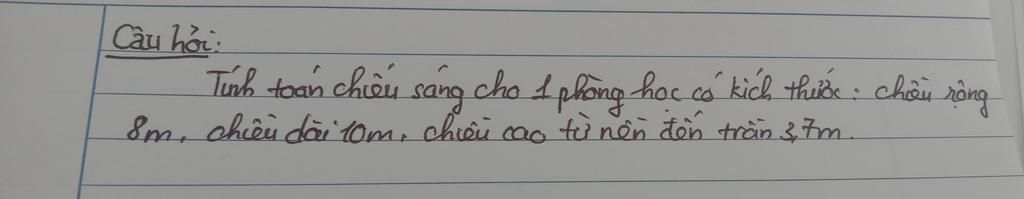 Câu hỏi:
Tính toán chiếu sáng cho 1 phòng học có kích thước: chiều rộng
8m, chiều dài 10m, chiều cao từ nền đến trần 3,7m.